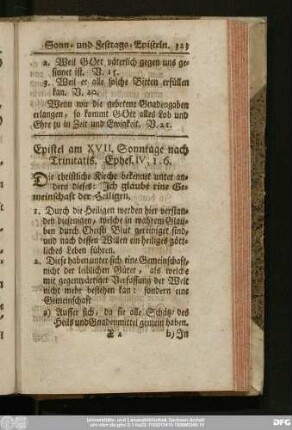 Sonn- und Festtags-Episteln. 323
2. Weil GOtt väterlich gegen uns ge-
sinnet ist. V. 15.
3. Weil er alle solche Bitten erfüllen
kan. V. 20.
Wenn wir die gebetene Gnadengaben
erlangen, so kommt GOtt alles Lob und
Ehre zu in Zeit und Ewigkeit. V. 21.
Epistel am XVII. Sonntage nach
Trinitatis. Ephes. IV, 1-6.
Die christliche Kirche bekennet unter an-
dern dieses: Ich glaube eine Ge-
meinschaft der Heiligen.
1. Durch die Heiligen werden hier verstan-
den diejenigen, welche in wahrem Glau-
ben durch Christi Blut gereiniget sind,
und nach dessen Willen ein heiliges gött-
liches Leben führen.
2. Diese haben unter sich eine Gemeinschaft,
nicht der leiblichen Güter, als welche
mit gegenwärtiger Verfassung der Welt
nicht mehr bestehen kan: sondern eine
Gemeinschaft
a) Ausser sich, da sie alle Schätze des
Heils und Gnadenmittel gemein haben.
X 2 b) In
DFG